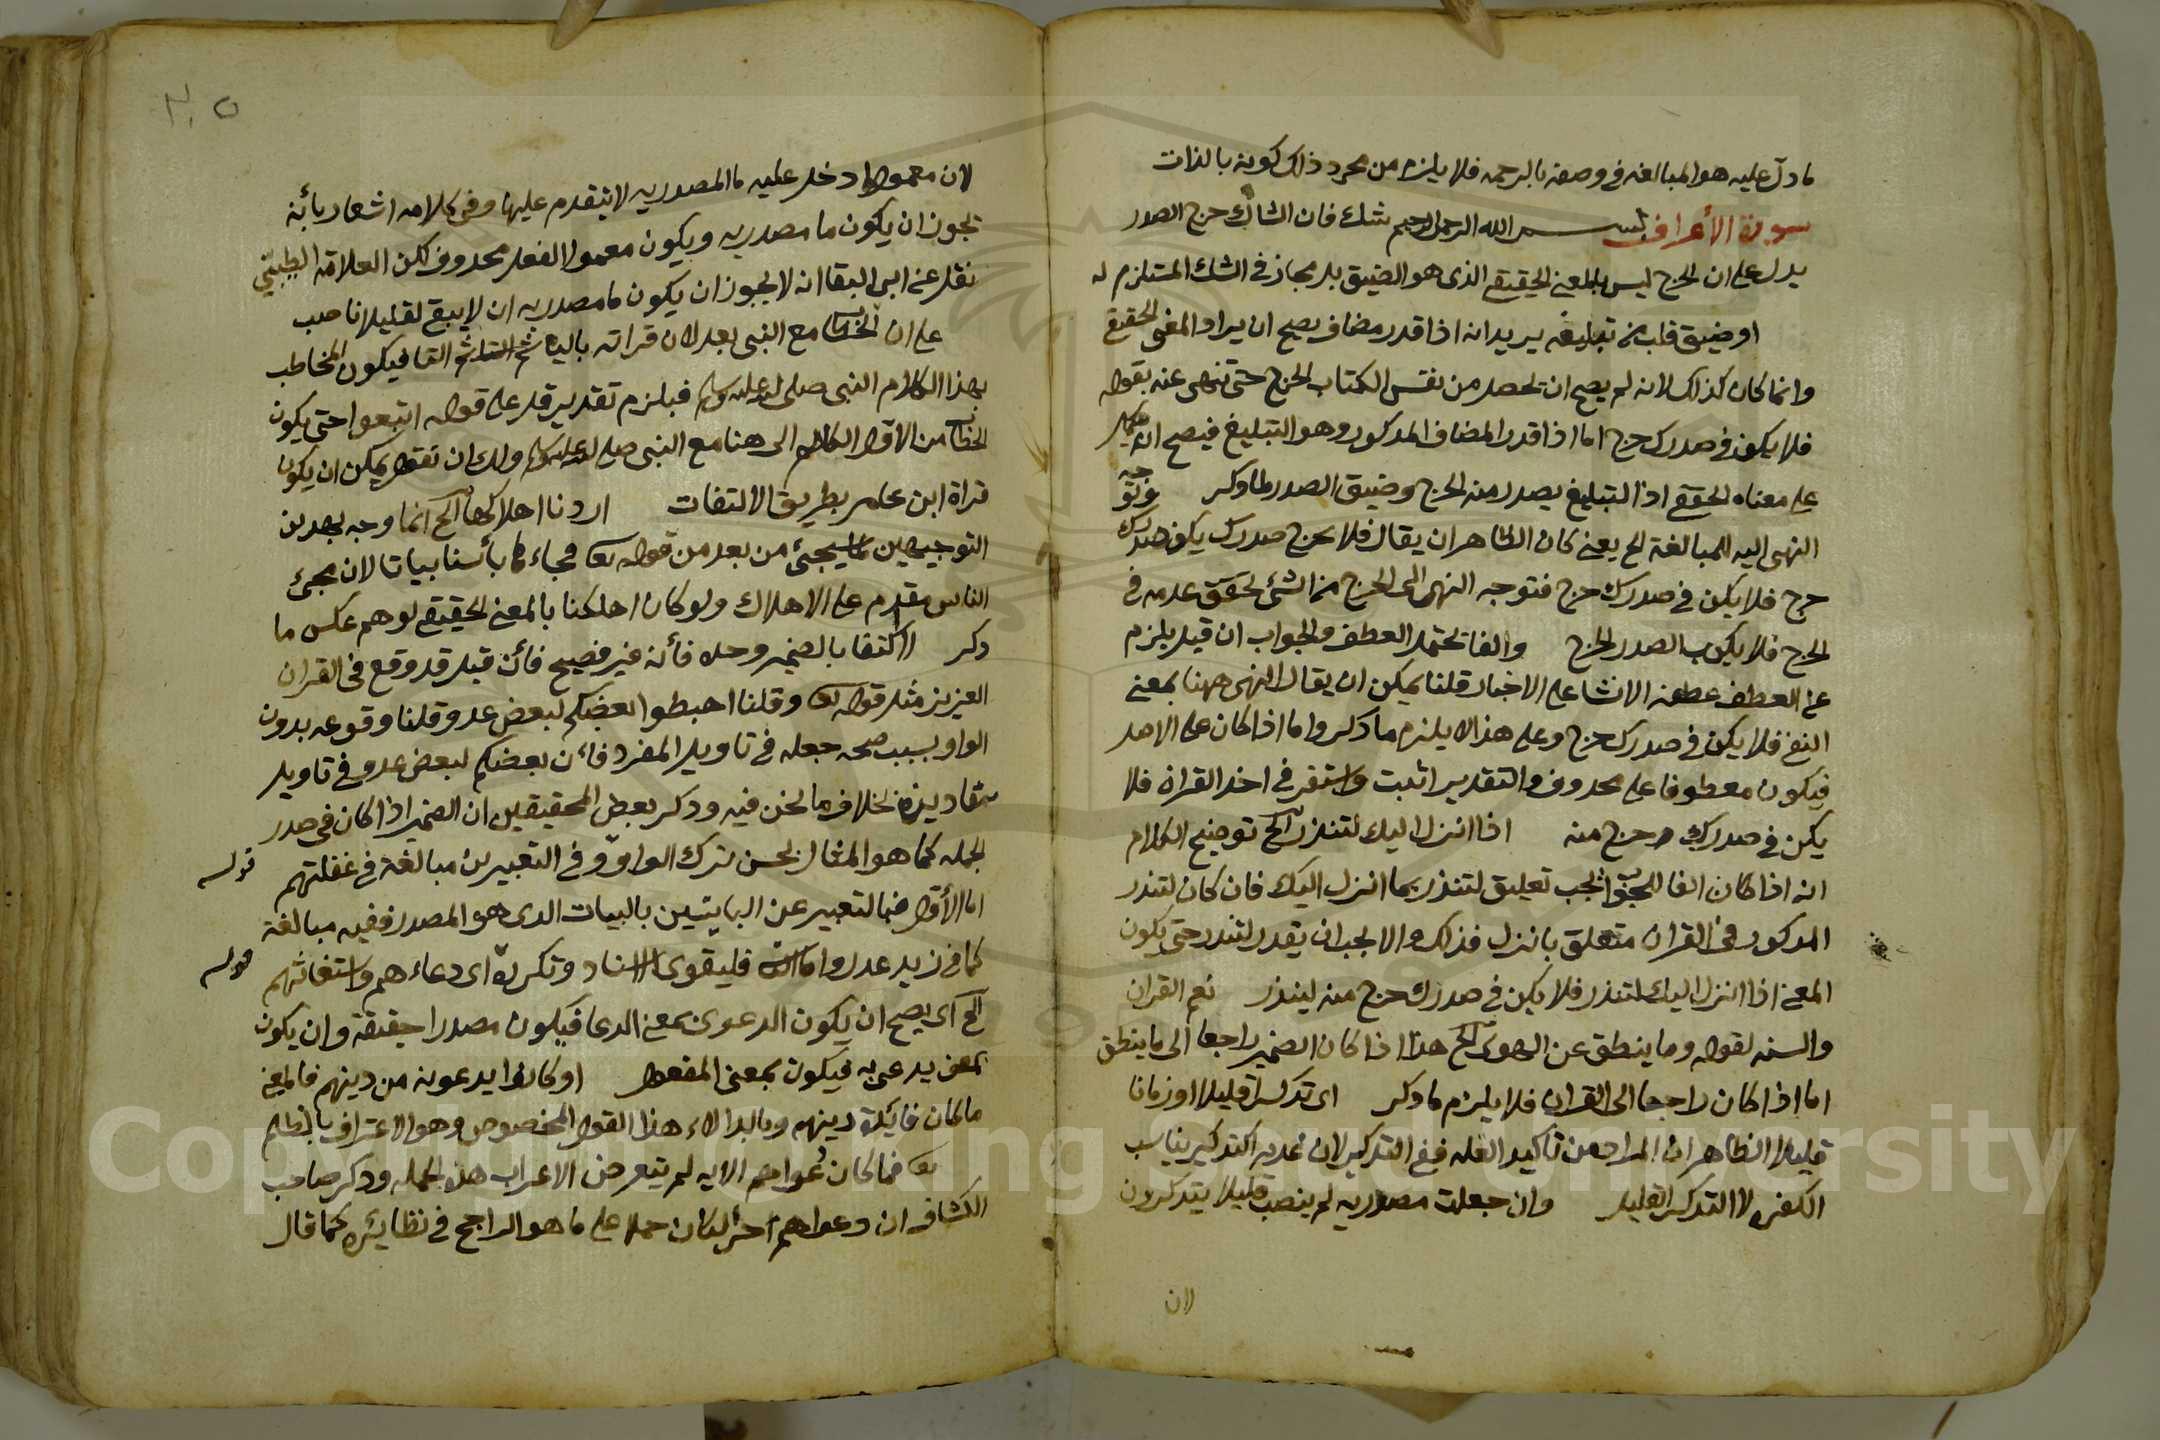 ما دل عليه هو المبالغه في وصفه بالرحمه فلا يلزم من مجرد ذلك كونه بالذات
سورة الأعراف بسم الله الرحمن الرحيم شك فان الشاك حرج الصدر
يدل على ان الحرج ليس بالمعنى الحقيقي الذى هو الضيق بل مجاز في الشك المستلزم له
او ضيق قلب من تبليغه يريد انه اذا قدر مضاف يصح ان يراد المعنى الحقيقي
وانما كان كذلك لانه لم يصح ان يحصل من نفس الكتاب الحرج حتى تنهى عنه بقوله
فلا يكون في صدرك حرج اما اذا قدر المضاف المذكور وهو التبليغ فيصح انه
على معناه الحقيقي اذ التبليغ يصدر منه الحرج وضيق الصدر لما ذكر وتوجيه
النهى اليه للمبالغة الخ يعنى كان الظاهر ان يقال فلا يحرج صدرك يكون صدرك
حرج فلا يكن في صدرك حرج فتوجه النهى الى الحرج
الحرج فلا يكن بالصدر الحرج والفا تحتمل العطف والجواب ان قيل يلزم
على العطف عطف الانشا على الاخبار قلنا يمكن ان يقال النهى ههنا بمعنى
النفى فلا يكن في صدرك حرج وعلى هذا لا يلزم ما ذكر واما اذا كان على الاصل
فيكون معطوفا على محذوف والتقدير اثبت واستقر في اخذ القران فلا
يكن في صدرك حرج منه اذا انزل اليك لتنذر الخ توضيح الكلام
انه اذا كان الفا للجواب يجب تعليق لتنذر بما انزل اليك فان كان لتنذر
المذكور في القران متعلق بانزل فذلك والا يجب ان يقدر لتنذر حتى يكون
المعنى اذا انزل اليك لتنذر فلا يكن في صدرك حرج منه لينذر نعم القران
والسنه لقوله وما ينطق عن الهوى الخ هذا اذا كان الضمير راجعا الى ما ينطق
اما اذا كان راجعا الى القران فلا يلزم ما ذكر اى تذكرا قليلا او زمانا
قليلا الظاهر ان المراد من تاكيد القله نفى التذكير لان عديه التذكير يناسب
الكفره لا التذكر القليل وان جعلت مصدريه لم ينصب قليلا يتذكرون
لان
لان معمول ما دخل عليه ما المصدريه لا يتقدم عليها وفى كلامه اشعار بأنه
يجوز ان يكون ما مصدريه ويكون معمولا لفعل محذوف لكن العلامة الطيبي
نقل عن ابى البقا انه لا يجوز ان يكون ما مصدريه ان لا يبقى لقليلا ناصب
على ان الخطاب مع النبى بعد لان قراته بالياء ثم التا فيكون المخاطب
بهذا الكلام النبى صلى الله عليه وسلم فيلزم تقدير قل على قوله اتبعوا حتى يكون
الخطاب من الاول الكلام الى هنا مع النبى صلى الله عليه وسلم ولك ان تقول يمكن ان يكون
قراة ابن عامر بطريق الالتفات اردنا اهلاكها الخ انما وجه بهدين
التوجيهين لما سيجئ من بعد من قوله تعا فجاءها بأسنا بياتا لان مجئ
الناس مقدم على الاهلاك ولو كان اهلكنا بالمعنى الحقيقي لوهم عكس ما
ذكر اكتفا بالضمير وحده فأنه غير فصيح فأن قيل قد وقع في القران
العزيز مثل قوله تعا وقلنا اهبطوا بعضكم لبعض عدو قلنا وقوعه بدون
الواو بسبب صحه جعله في تاويل المفرد فان بعضكم لبعض عدو في تاويل
متعاديين بخلاف ما نحن فيه وذكر بعض المحققين ان الضمير اذا كان في صدر
الجمله كما هو المثال يحسن ترك الواو وفى التعبيرين مبالغة في غفلتهم قوله
اما الأول فبالتعبير عن البايتين بالبيات الذى هو المصدر ففيه مبالغة
كما في زيد عدل واما الثانى فليقوى الاسناد وتكرره اى دعاءهم واستغاثتهم قوله
الخ اى يصح ان يكون الدعوى بمعنى الدعا فيكون مصدرا حقيقة وان يكون
بمعنى يدعى به فيكون بمعنى المفعول او كانوا يدعونه من دينهم فالمعنى
ما كان فائدة دينهم ومالهم الا هذا القول المخصوص وهو الاعتراف بالظلم
تعا فما كان دعواهم الايه لم يتعرض الاعراب هذه الجمله وذكر صاحب
الكشاف ان دعواهم اخر لكان حملا على ما هو الراجح في نظائره كما قال